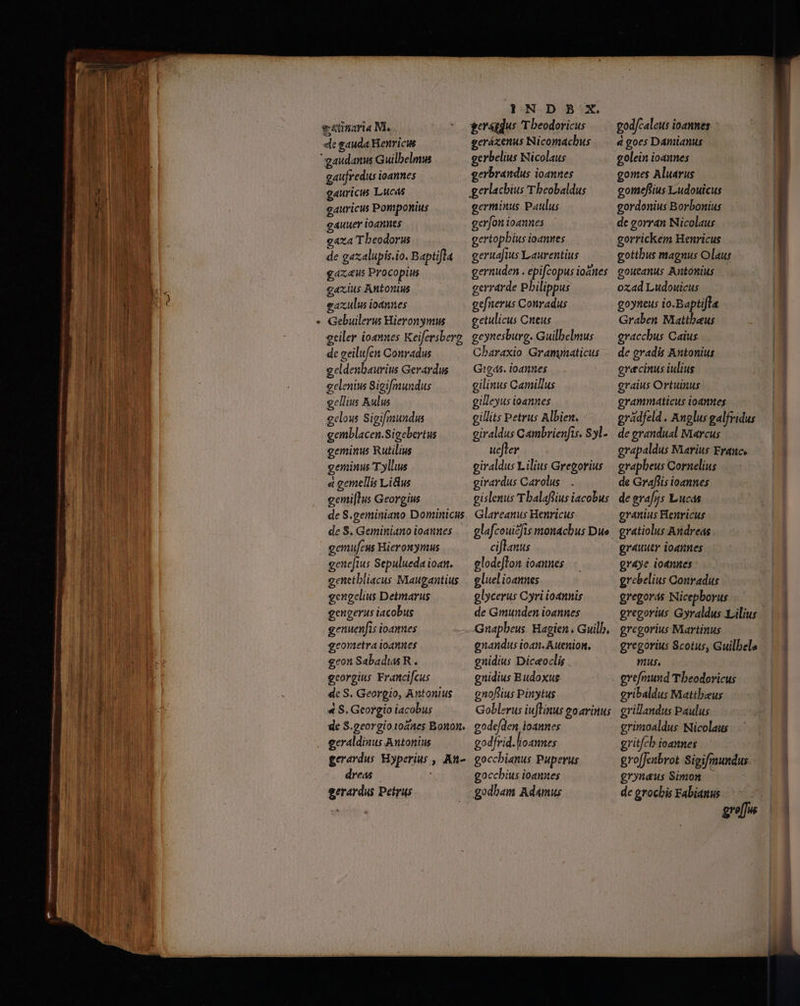 INDEX.
gatinaria M.
de gauda Henricus
gaudanus Guilhelmus
gaufredus ioannes
gauricus Lucas
gauricus Pomponius
gauuer ioannes
gaza Theodorus
de gazalupis.io. Baptiſta
gazæus Procopius
gazius Antonius
gazulus ioannes
* Gebuilerus Hieronymus
geiler ioannes Keiſersberg
de geiluſen Conradus
geldenhaurius Gerardus
gelenius Sigiſmundus
gellius Aulus
gelous Sigiſmundus
gemblacen.Sigebertus
geminus Rutilius
geminus Tyllius
a gemellis Lictus
gemiſtus Georgius
de S.geminiano Dominicus
de S. Geminiano ioannes
gemuſeus Hieronymus
geneſius Sepulueda ioan.
genethliacus Maugantius
gengelius Detmarus
gengerus iacobus
genuenſis ioannes
geometra ioannes
geon Sabadius R.
georgius Franciſcus
de S. Georgio, Antonius
a S. Georgio iacobus
de S.georgio ioãnes Bonon.
geraldinus Antonius
gerardus Hyperius, An-
dreas
gerardus Petrus
geraꝗdus Theodoricus
geräzenus Nicomachus
gerbelius Nicolaus
gerbrandus ioannes
gerlachius Theobaldus
germinus Paulus
gerſon ioannes
gertophius ioannes
geruaſius Laurentius
gernuden. epiſcopus ioãnes
gerrarde Philippus
geſnerus Conradus
getulicus Cneus
geynesburg. Guilhelmus
Charaxio Grammaticus
Gigas. ioannes
gilinus Camillus
gilleyus ioannes
gillits Petrus Albien.
giraldus Cambrienſis. Syl-
ueſter
giraldus Lilius Gregorius
girardus Carolus.
gislenus Thalaſsius iacobus
Glareanus Henricus
glaſcouiẽſis monachus Due
ciſtanus
glodeſton ioannes
gluel ioannes
glycerus Cyri ioannis
de Gmunden ioannes
Gnapheus. Hagien. Guilh.
gnandus ioan. Auenion.
gnidius Dicæoclis
gnidius Eudoxus
gnoſsius Pinytus
Goblerus iuſtinus goarinus
godeſden ioannes
godfrid. Ioannes
gocchianus Puperus
gocchius ioannes
godham Adamus
godſcalcus ioannes
a goes Damianus
golein ioannes
gomes Aluarus
gomeſsius Ludouicus
gordonius Borbonius
de gorran Nicolaus
gorrickem Henricus
gotthus magnus Olaus
goueanus Antonius
ozad Ludouicus
goyneus io.Baptiſta
Graben Matthæus
gracchus Caius
de gradis Antonius
græcinus iulius
graius Ortuinus
grammaticus ioannes
grädfeld. Anglus galfridus
de grandual Marcus
grapaldus Marius Franc.
grapheus Cornelius
de Graſsis ioannes
de graſijs Lucas
granius Henricus
gratiolus Andreas
grauuer ioannes
graye ioannes
grebelius Conradus
gregoras Nicephorus
gregorius Gyraldus Lilius
gregorius Martinus
gregorius Scotus, Guilhel-
mus.
greſmund Theodoricus
gribaldus Matthæus
grillandus Paulus
grimoaldus Nicolaus
gritſch ioannes
groſſenbrot Sigiſmundus
grynæus Simon
de grochis Fabianus
groſſus